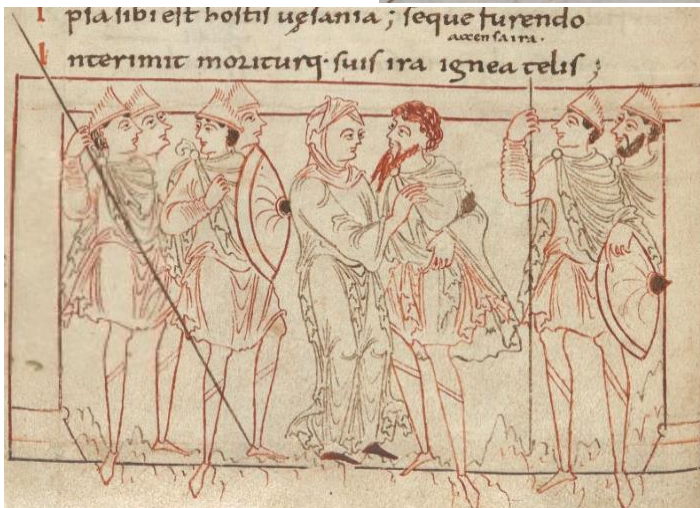 Ipsa sibi est hostis vęsania; seque furendo
accensa ira.
Interimit moriturq· suis ira ignea telis;